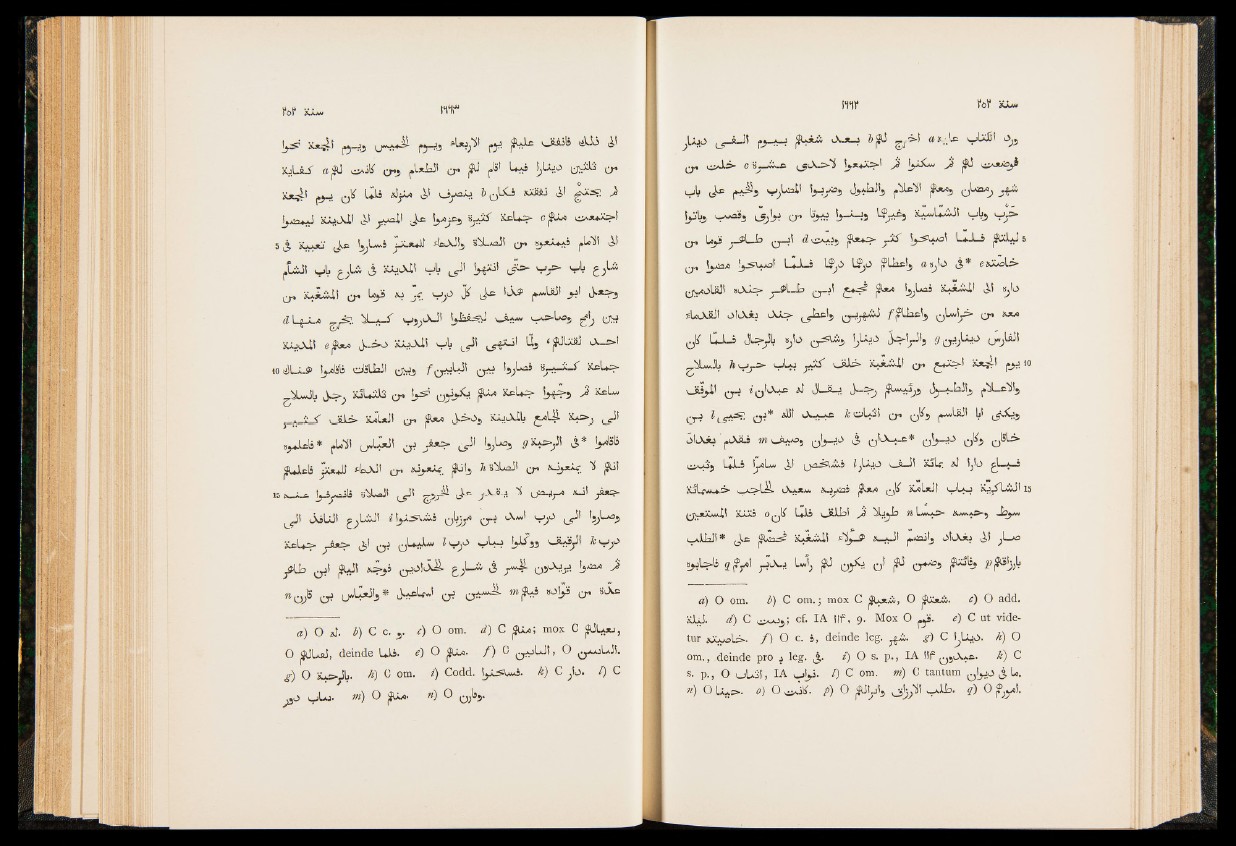 ١٦٦٢ سنة ٢٥٢
ورد الكتاب عليه a اخرج لهم b بعد شغبهم بيوم الفى دينار
فوضعت لهم ثم سكنوا ثم اجتمعوا لاحدى عشرة c خلت من
شهر رمضان ومعهم الاعلام والطبول وضربوا المضارب والخيم على باب
حَرْب وباب الشمّاسيّة وغيرها وبنوا بيوتا من بوارى وقصب وباتوا
5 ليلتهم فلمّا اصبحوا كثر جمعهم وبيّت d ابن طاهر قوما من
خاصّته e *فى داره a واعطاهم درها درها فلمّا اصبحوا مضوا من
داره الى المشغّبة فصاروا معهم فجمع ابن طاهر جنده القادمين
معه من خراسان واعطاهم f لشهرين واعطى جند بغداد القدماء
الفارس دينارين g والراجل دينارا وشحن داره بالرجال فلمّا كان
10 يوم الجمعة اجتمع من المشغّبة خلق كثير بباب حرب h بالسلاح
والاعلام والطبول ورئيسهم رجل يقال له عبدان i بن الموفّق
ويكنى ابا القاسم وكان من اثبات k عبيد الله *بن يحيى l بن
خاقان وكان ديوانه *عبدان فى ديوان وصيف m فقدم بغداد
فباع دارا له بمائة الف دينار l فشخص الى سامرّا فلمّا وثبت
15 الشاكريّة بباب العامّة كان معهم فضربه سعيد الحاجب خمسمائة
سوط وحبسه حبسًا n طويلا ثم اطلق فلمّا كان o فتنة المستعين
صار الى بغداد وانضمّ اليه هؤلاء المشغّبة فحضّهم على *الطلب
بارزاقهم p وفائتهم وضمن لهم ان يكون لهم رأسا يدبّر امرهم q فاجابوه
a) O om. b) C om.; mox C شغبهم, O شغبهم. c) O add.
ليلة. d) C وبيت; cf. IA ١١٣, 9. Mox O قوم. e) C ut vide-
tur خاصيته. f) O c. ف, deinde leg. شهر. g) C دينارا. h) O
om., deinde pro ب leg. فى. i) O s. p., IA ١١٣ عبدون. k) C
s. p., O, IA نواب. l) C om. m) C tantum ما فى ديوان.
n) O حينا. o) O كانت. p) O طلب الارزاق وانزالهم. q) O امورهم.
سنة ٢٥٢ ١٦٦٣
الى ذلك فانفق عليهم يوم الاربعاء ويوم الخميس ويوم الجمعة نحوا
من ثلثين دينارا فيما اقام لهم من الطعام ومن كانت له a كفاية
لم يحتج الى نفقته فكان b ينصرف الى منزله فلمّا كان يوم الجمعة
اجتمعت منهم c جماعة كثيرة وعزموا على المصير الى المدينة ليمضوا
5 الى الامام فيمنعوه من الصلاة والدعاء للمعتزّ فساروا على تعبية فى
شارع باب حرب حتّى انتهوا الى باب المدينة فى شارع باب الشأم
وجعل ابو القاسم هذا على كلّ درب يمرّ به قوما من المشغّبة
من بين رامح وصاحب سيف ليحفظوا الدروب كيلا يخرج منها d
احد لقتالهم، ولمّا انتهى الى باب المدينة دخل معهم e المدينة
10 جماعة كثيرة فصاروا بين البابين f وبين الطاقات فاقاموا هناك
ساعة ثم وجّهوا جماعة منهم يكونون نحوا من ثلثمائة رجل بالسلاح
الى رحبة الجامع بالمدينة ودخل معهم من العامّة خلق كثير
فاقاموا *فى الرحبة g وصاروا الى جعفر بن العبّاس الامام *فاعلموه
انّهم لا يمنعونه من الصلاة h وانّهم يمنعونه من الدعاء للمعتزّ فاعلمهم
15 جعفر انه مريض لا يقدر على الخروج الى الصلاة فانصرفوا عنه
وصاروا الى درب اسد بن مرزبان فشحنوا i الشارع النافذ الى
درب k الرقيق ووكّلوا بباب درب l سليمان بن ابى جعفر جماعة
ثم مضوا يريدون الجسر فى شارع الحدّادين فوجّه اليهم ابن طاهر
عدّة من قوّاده فيهم m الحسين بن اسماعيل *والعبّاس بن قارن n
a) O له. b) C c. و. c) O om. d) C منهم; mox C
O, deinde فلما. e) O منهم. f) C, O.
g) O بالرحبة. h) C om. i) Codd. فسحنوا. k) C دار. l) C
بباب دور. m) O منهم. n) O وقارن.